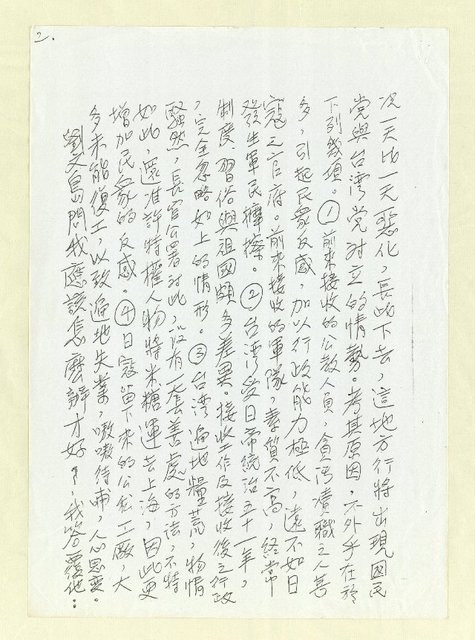 2.
況一天比一天惡化，長此下去，這地方行將出現國民
党與台湾党対立的情勢。考其原因，不外乎在於
下列幾項。①前來接收的公教人員，貪污瀆職之人甚
多，引起民眾反感，加以行政能力極低，遠不如日
寇之官府。前來接收的軍隊，素質不高，經常
發生軍民摩擦。②台湾受日帝統治五十一年，
制度習俗與祖國頗多差異。接收工作及接收後之行政
，完全忽略如上的情形。③台湾遍地糧荒，物情
騷然，長官公署対此，沒有一套善處的方法，不特
如此，還准許特權人物將米糖運去上海，因此更
增加民眾的反感。④日寇留下來的公私工廠，大
多未能復工，以致遍地失業，嗷嗷待哺，人心思變。
劉文島問我應該怎麼辦才好？，我答覆他：